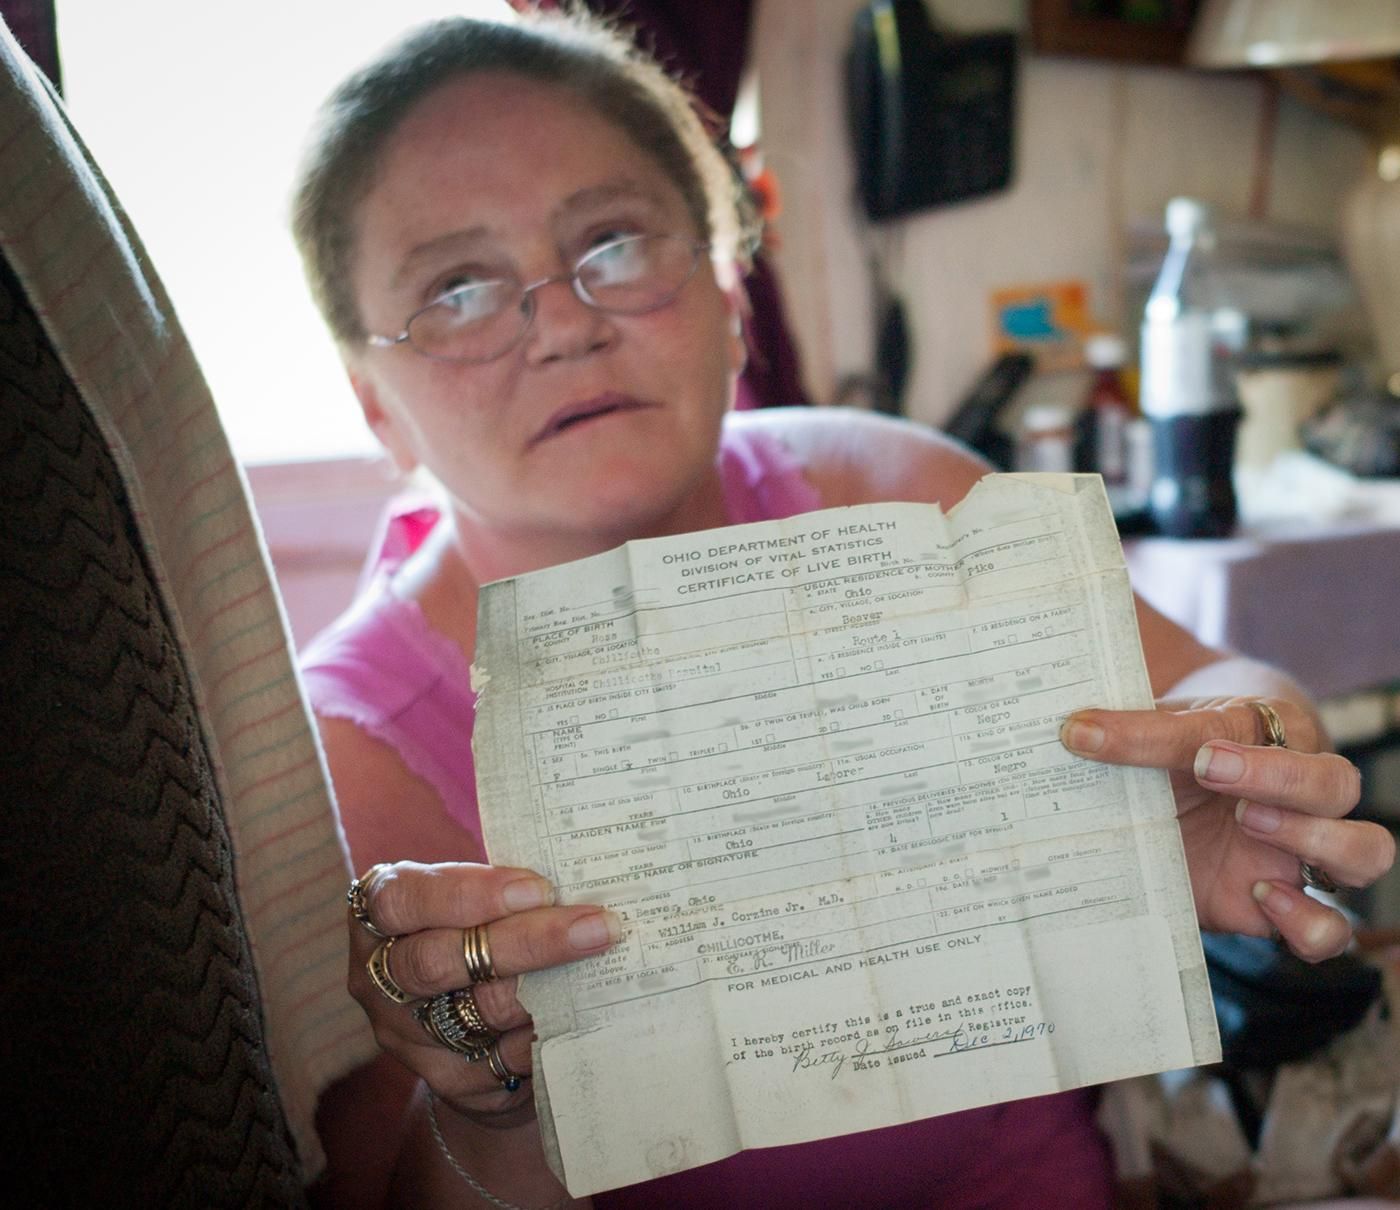 OHIO DEPARTMENT OF HEALTH
DIVISION OF VITAL STATISTICS
CERTIFICATE OF LIVE BIRTH
Birth No.
Registrar's No.
Reg. Dist. No.
Primary Reg. Dist. No.
PLACE OF BIRTH
a. COUNTY Ross
CITY, VILLAGE, OR LOCATION
Chillicothe
HOSPITAL OR INSTITUTION Chillicothe Hospital
d. IS PLACE OF BIRTH INSIDE CITY LIMITS?
YES NO
2. USUAL RESIDENCE OF MOTHER (Where does mother live?)
a. STATE Ohio b. COUNTY Pike
CITY, VILLAGE, OR LOCATION
Beaver
d. STREET ADDRESS
Route 1
e. IS RESIDENCE INSIDE CITY LIMITS?
YES NO
f. IS RESIDENCE ON A FARM?
YES NO
3. NAME (TYPE OR PRINT) First Middle Last
6. DATE OF BIRTH MONTH DAY YEAR
4. SEX F
5a. THIS BIRTH
SINGLE x TWIN TRIPLET
5b. IF TWIN OR TRIPLET, WAS CHILD BORN
1ST 2D 3D
7. NAME First Middle Last
8. COLOR OR RACE
Negro
AGE (At time of this birth)
YEARS
10. BIRTHPLACE (State or foreign country)
Ohio
11a. USUAL OCCUPATION
Laborer
11b. KIND OF BUSINESS OR
12. MAIDEN NAME First Middle Last
13. COLOR OR RACE
Negro
14. AGE (At time of this birth)
YEARS
15. BIRTHPLACE (State or foreign country)
Ohio
16. PREVIOUS DELIVERIES TO MOTHER (DO NOT include this birth)
a. How many OTHER children are now living?
4
1
1
INFORMANT'S NAME OR SIGNATURE
19. DATE SEROLOGIC TEST FOR SYPHILIS
MAILING ADDRESS
1 Beaver, Ohio
SIGNATURE
William J. Corzine Jr. M.D.
M. D. D. O. MIDWIFE OTHER (Specify)
19c. ADDRESS
CHILLICOTHE,
19d. DATE
DATE RECD BY LOCAL REG.
21. REGISTRAR'S SIGNATURE
E. R. Miller
22. DATE ON WHICH GIVEN NAME ADDED
BY (Registrar)
FOR MEDICAL AND HEALTH USE ONLY
I hereby certify this is a true and exact copy
of the birth record as on file in this office.
Betty J. Sowers Registrar
Date issued Dec. 2, 1970